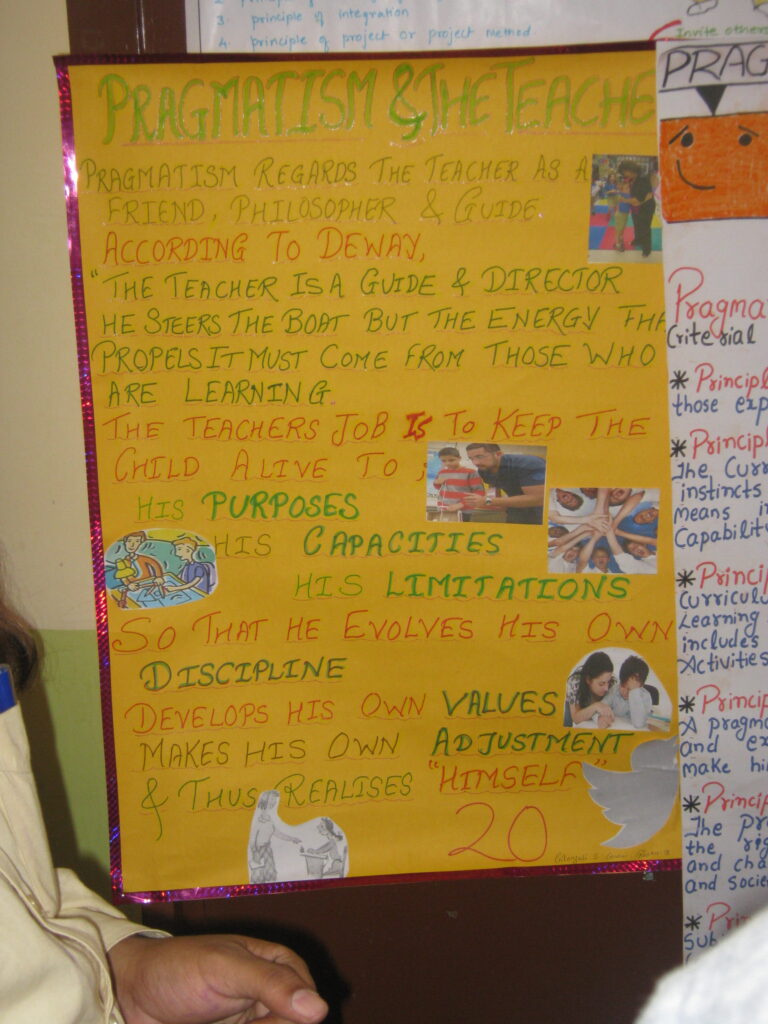 3. principle of integration
4. principle of project or project method
Invite others
PRAGMATISM & THE TEACHE
PRAGMATISM REGARDS THE TEACHER AS A
FRIEND, PHILOSOPHER & GUIDE
ACCORDING TO DEWAY,
"THE TEACHER IS A GUIDE & DIRECTOR
HE STEERS THE BOAT BUT THE ENERGY THA
PROPELS IT MUST COME FROM THOSE WHO
ARE LEARNING.
THE TEACHERS JOB IS TO KEEP THE
CHILD ALIVE TO ;
HIS PURPOSES
HIS CAPACITIES
HIS LIMITATIONS
SO THAT HE EVOLVES HIS OWN
DISCIPLINE
DEVELOPS HIS OWN VALUES
MAKES HIS OWN ADJUSTMENT
& THUS REALISES "HIMSELF"
20
PRAG
Pragma
Criterial
* Principl
those exp
* Princip
The Curr
instincts
means in
Capability
* Princip
Curricul
Learning
includes
Activities
* Princip
A pragm
and ex
make hi
* Princip
The pr
the rig
and cha
and socie
* Prin
Sub